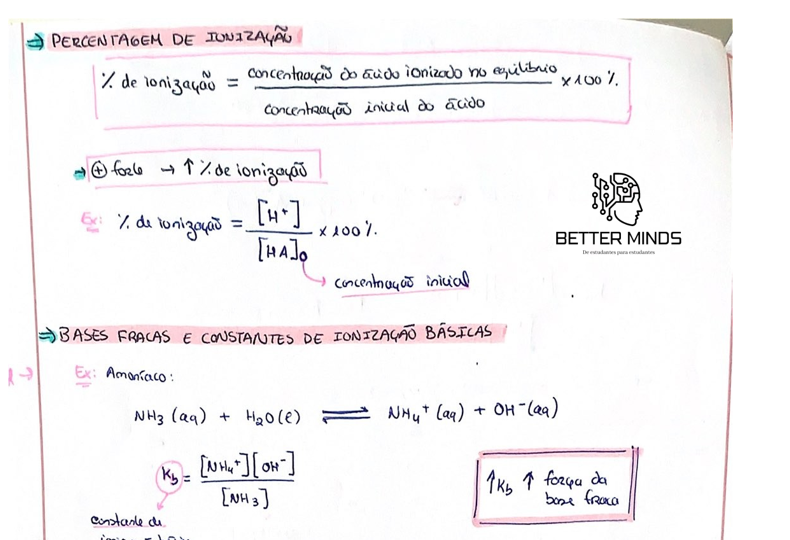 ⇒ PERCENTAGEM DE IONIZAÇÃO
% de ionização = concentração do ácido ionizado no equilíbrio / concentração inicial do ácido × 100 %.
→ ⊕ forte → ↑ % de ionização
Ex: % de ionização = [H⁺] / [HA]₀ × 100 %.
→ concentração inicial
BETTER MINDS
De estudantes para estudantes
⇒ BASES FRACAS E CONSTANTES DE IONIZAÇÃO BÁSICAS
Ex: Amoníaco:
NH₃ (aq) + H₂O(l) ⇌ NH₄⁺ (aq) + OH⁻(aq)
Kb = [NH₄⁺][OH⁻] / [NH₃]
↑Kb ↑ força da
base fraca
constante de